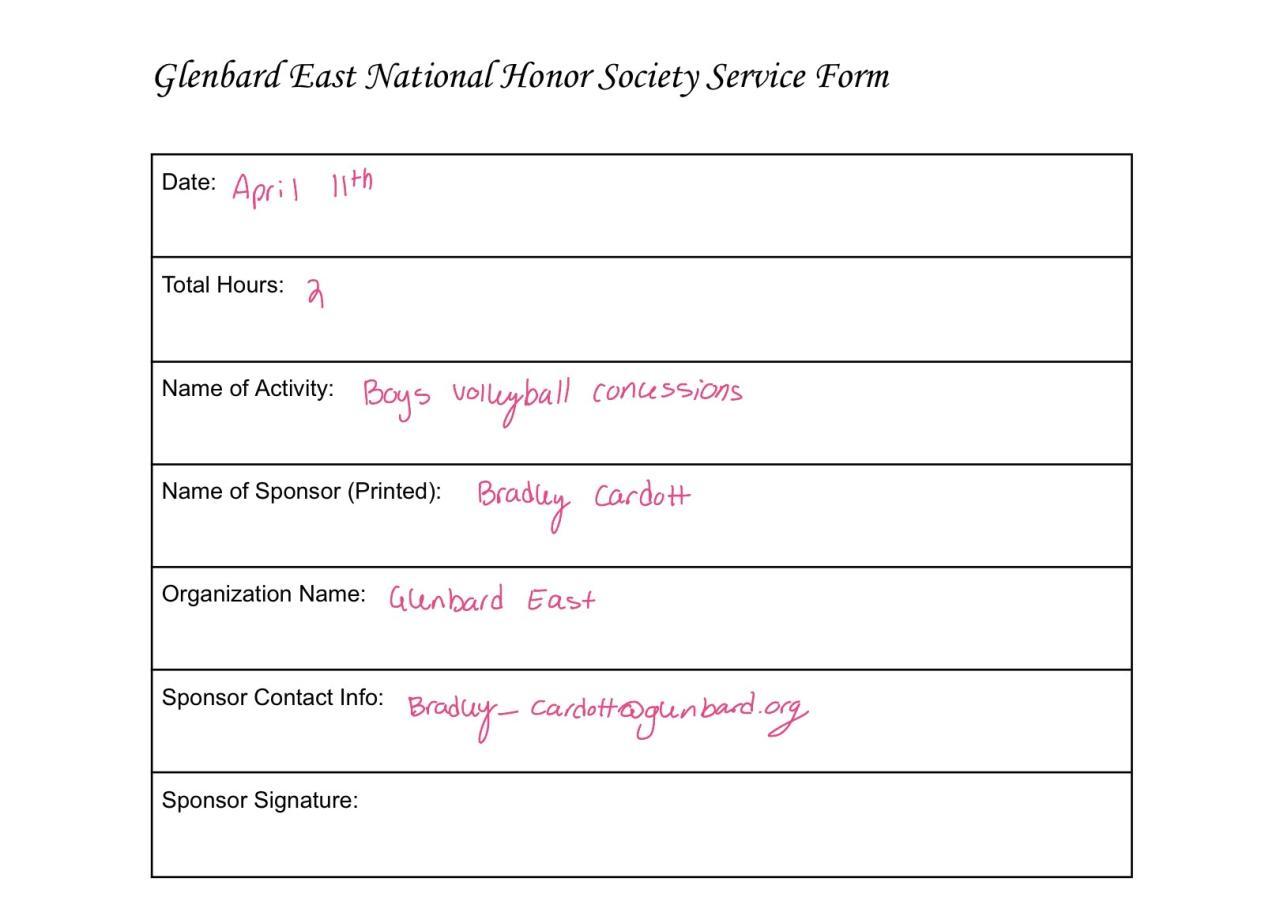 Glenbard East National Honor Society Service Form
Date: April 11th
Total Hours: 2
Name of Activity: Boys volleyball concessions
Name of Sponsor (Printed): Bradley Cardott
Organization Name: Glenbard East
Sponsor Contact Info: Bradley_cardott@glenbard.org
Sponsor Signature: